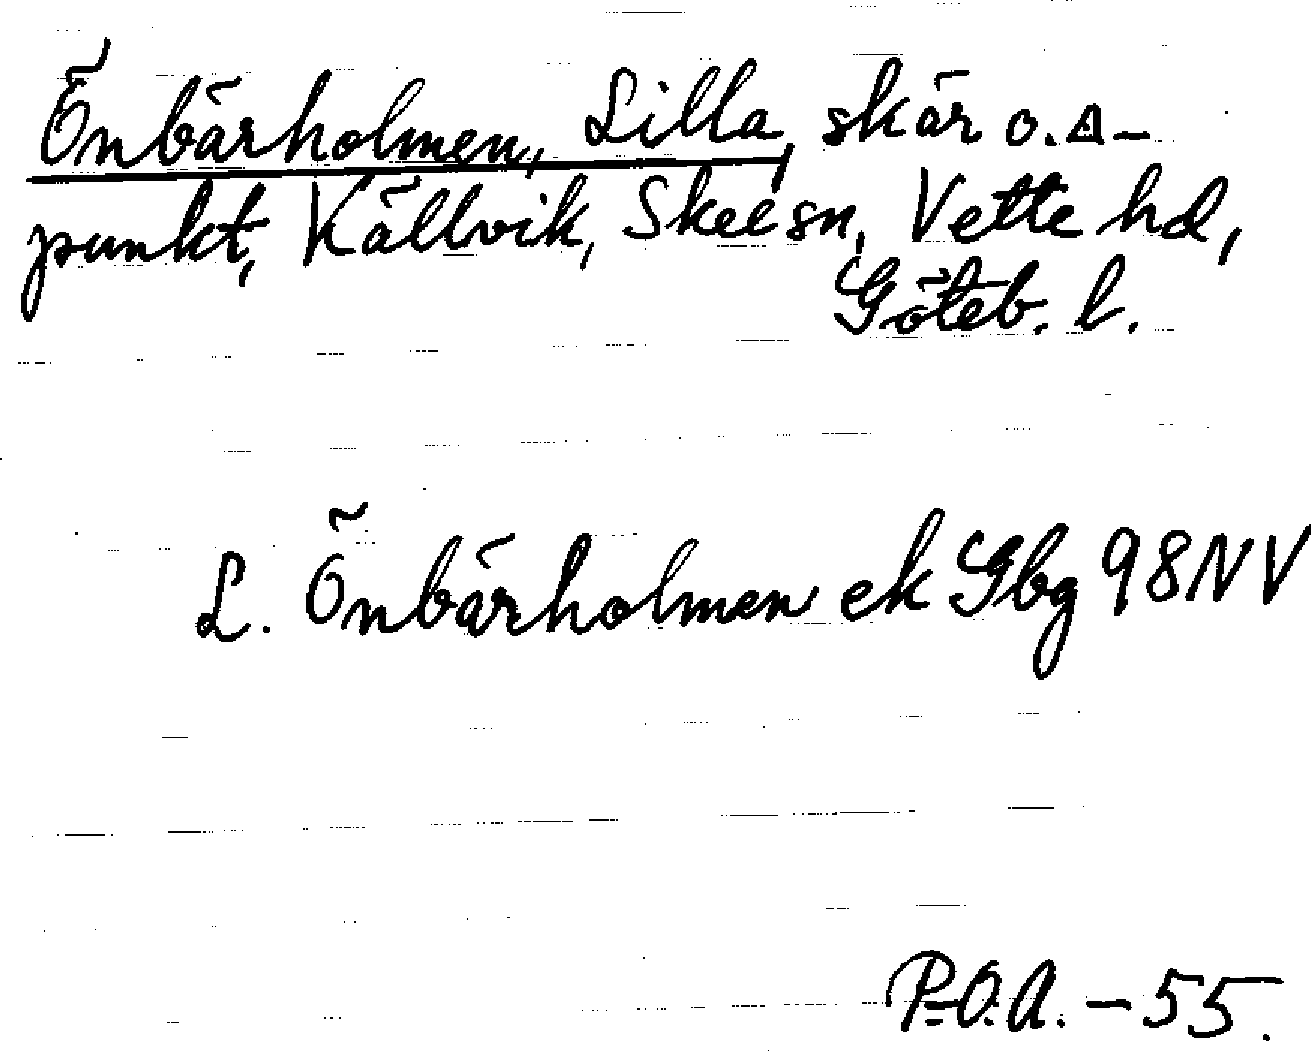 Önbärholmen, Lilla, skär o. Δ-
punkt, Källvik, Skee sn, Vette hd,
Göteb. l.
L. Önbärholmen ek Gbg 98 NV
P.O.A. - 55.